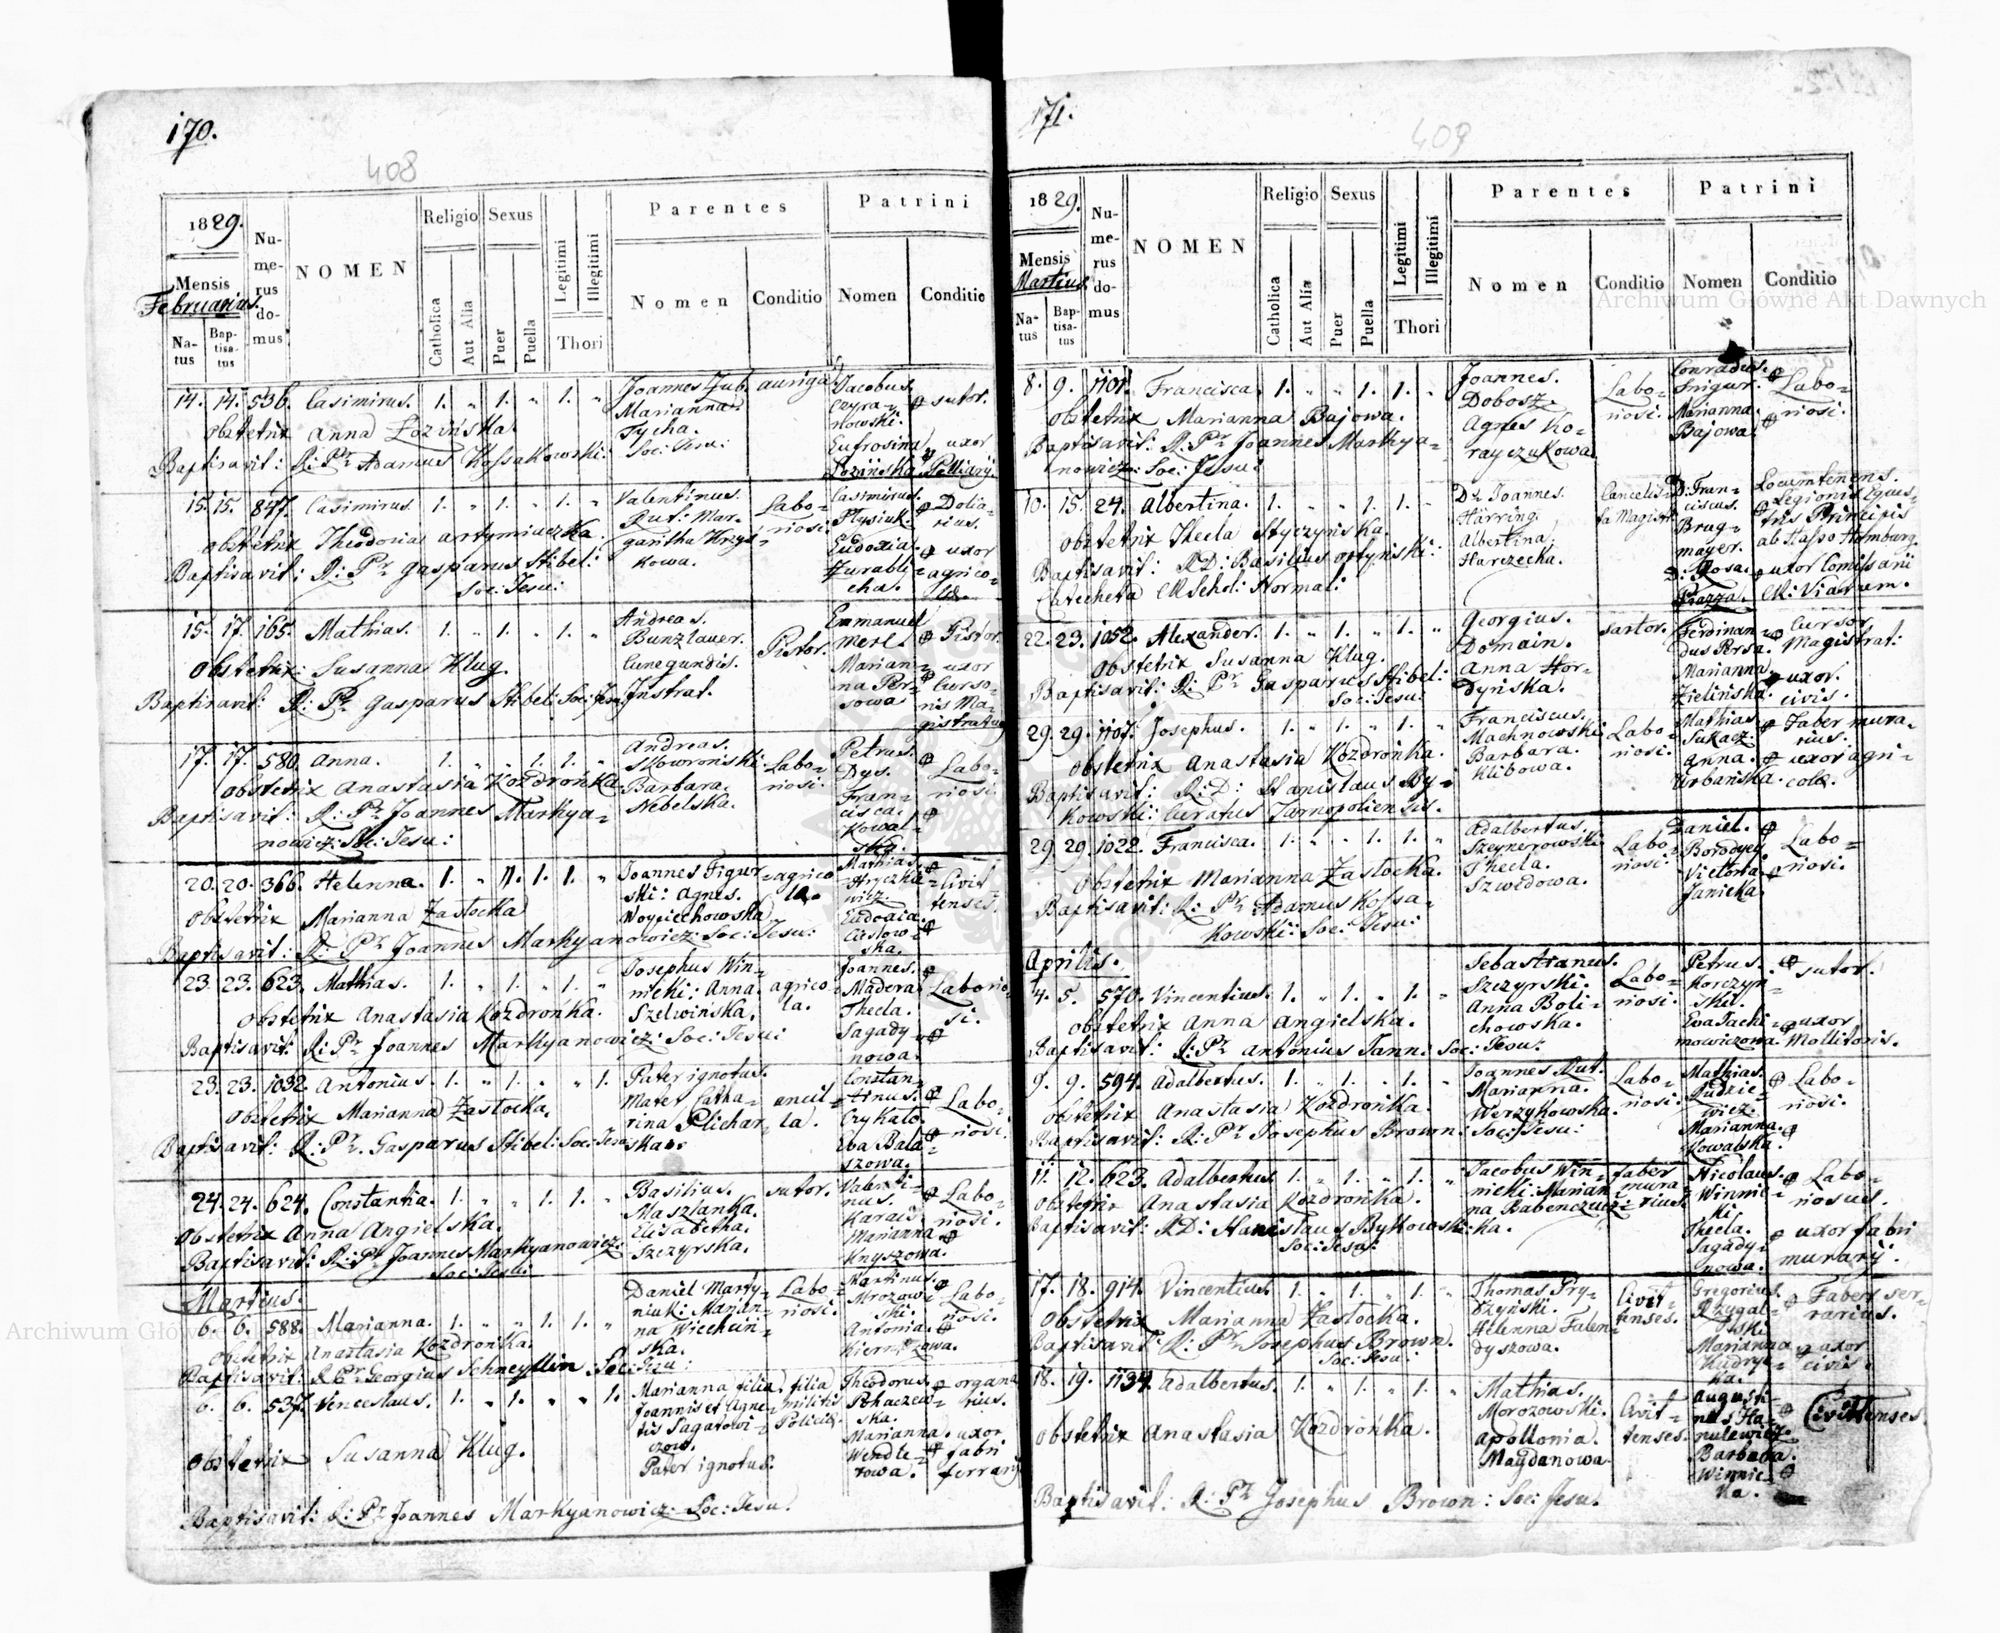 170.
408
1829.
Mensis
Februarius.
Natus
Baptisatus
Numerus domus
NOMEN
Religio
Catholica
Aut Alia
Sexus
Puer
Puella
Legitimi
Illegitimi
Thori
Parentes
Nomen
Conditio
Patrini
Nomen
Conditio
14. 14. 536. Casimirus. 1. " 1. " 1. "
Obstetrix Anna Łozińska.
Baptisavit: R: Pr Adamus Kossakowski:
Joannes Zub. auriga.
Marianna
Tycha.
Soc: Jesu:
Jacobus
Czyra=
nowski.
Eufrosina
Łozińska
sutor.
uxor
Pelliarÿ.
15. 15. 847. Casimirus. 1. " 1. " 1. "
obstetrix Theodosia Artymiuczka.
Baptisavit: R: Pr Gasparus Stibel:
Soc: Jesu:
Valentinus.
Rut: Mar=
garitha Krzyż=
kowa.
Labo=
riosi.
Casimirus.
Ptysiuk.
Eudoxia.
Żurabli=
cha.
Dolia=
rius.
uxor
agrico=
lae.
15. 17. 165. Mathias. 1. " 1. " 1. "
Obstetrix: Susanna Klug.
Baptisavit: R: Pr Gasparus Stibel: Soc: Jesu:
Andreas.
Bunzlauer.
Cunegundis.
Instrat.
Pistor.
Emmanuel
Merl.
Marian=
na Per=
sowa
Pistor.
uxor
Curso=
ris Ma=
gistratus
17. 17. 580. Anna. 1. " " 1. 1. "
obstetrix Anastasia Kozdrońka.
Baptisavit: R: Pr Joannes Markya=
nowicz: Soc: Jesu:
Andreas.
Skowroński.
Barbara.
Nebelska.
Labo=
riosi.
Petrus.
Dys.
Fran=
cisca.
Kowal=
ska.
Labo=
riosi.
20. 20. 366. Helenna. 1. " 1. 1. "
Obstetrix Marianna Zastocka
Baptisavit: R: Pr Joannes Markyanowicz: Soc: Jesu:
Joannes Figur=
ski: Agnes.
Woyciechowska
agrico=
la.
Mathias.
Hryczke=
wicz.
Eudoxia.
Cisłow=
ska.
Civit=
tenses.
23. 23. 623. Mathias. 1. " 1. " 1. "
Obstetrix Anastasia Kozdrońka.
Baptisavit: R: Pr Joannes Markyanowicz: Soc: Jesu:
Josephus Win=
nicki: Anna.
Szelwińska.
agrico=
la.
Joannes.
Madera
Thecla.
Sagady=
nowa.
Laborio=
si.
23. 23. 1032. Antonius. 1. " 1. " " 1.
Obstetrix Marianna Zastocka.
Baptisavit: R: Pr. Gasparus Stibel: Soc: Jesu
Pater ignotus.
Mater Catha=
rina Plichar=
ska.
ancil=
la.
Constan=
tinus.
Czykało.
Eva Bala=
szowa.
Labo=
riosi.
24. 24. 624. Constantia. 1. " " 1. 1. "
Obstetrix Anna Angielska.
Baptisavit: R: Pr Joannes Markyanowicz:
Soc: Jesu:
Basilius.
Maszlanka.
Elisabetha.
Szczyrska.
sutor.
Valenti=
nus.
Karaus.
Marianna
Knyszowa.
Labo=
riosi.
Martius.
6. 6. 588. Marianna. 1. " " 1. 1. "
Obstetrix Anastasia Kozdrońka.
Baptisavit: R: Pr Georgius Schneyllin Soc: Jesu:
Daniel Marty=
niuk: Marian=
na Wiecheiń=
ska.
Labo=
riosi.
Martinus.
Mrozow=
ski.
Antonia.
Labo=
riosi.
6. 6. 537. Venceslaus. 1. " 1. " " 1.
Obstetrix Susanna Klug.
Baptisavit: R: Pr Joannes Markyanowicz: Soc: Jesu:
Marianna filia
Joannis et Agne=
tis Sagatowi=
czow.
Pater ignotus.
filia
militis
Policiae.
Theodorus.
Marianna.
Wendle=
rowa.
organa=
rius.
uxor
fabri
ferrarÿ
171.
409
1829.
Mensis
Martius.
Natus
Baptisatus
Numerus domus
NOMEN
Religio
Catholica
Aut Alia
Sexus
Puer
Puella
Legitimi
Illegitimi
Thori
Parentes
Nomen
Conditio
Patrini
Nomen
Conditio
8. 9. 1101. Francisca. 1. " " 1. 1. "
Obstetrix Marianna Bajowa.
Baptisavit: R: Pr Joannes Markya=
nowicz: Soc: Jesu:
Joannes.
Dobosz.
Agnes Ko=
rayczukowa
Labo=
riosi.
Conradus.
Frigur.
Marianna.
Bajowa.
Labo=
riosi.
10. 15. 24. Albertina. 1. " " 1. 1. "
Obstetrix Thecla Styczyńska.
Baptisavit: R: D: Basilius Optyński:
Catecheta CR Schol: Normal:
Dr. Joannes.
Harring.
Albertina.
Harczecka.
Cancelis=
ta Magist:
D: Fran=
ciscus.
Brug=
mayer.
D: Rosa.
Piazza.
Locumtenens.
Legionis Eques=
tris Principis
ab Hasso Homburg.
uxor Comissarii
CR: Viarum.
22. 23. 1052. Alexander. 1. " 1. " 1. "
Obstetrix Susanna Klug.
Baptisavit: R: Pr Gasparus Stibel:
Soc: Jesu:
Georgius.
Domain.
Anna Hor=
dyńska.
sartor.
Ferdinan=
dus Persa.
Marianna
Zielińska.
Cursor
Magistrat:
uxor.
civis.
29. 29. 1101. Josephus. 1. " 1. " 1. "
Obstetrix Anastasia Kozdrońka.
Baptisavit: R: D: Stanislaus By=
kowski: Curatus Tarnopoliensis.
Franciscus.
Machnowski
Barbara.
Klibowa.
Labo=
riosi.
Mathias
Sukacz.
Anna.
Urbańska.
Faber mura=
rius.
uxor agri=
colae.
29. 29. 1022. Francisca. 1. " " 1. 1. "
Obstetrix Marianna Zastocka.
Baptisavit: R: Pr Adamus Kossa=
kowski: Soc: Jesu:
Adalbertus.
Szeynerowski
Thecla.
Szwedowa.
Labo=
riosi.
Daniel.
Borodyey
Victoria
Janicka
Labo=
riosi.
Aprilis.
4. 5. 570. Vincentius. 1. " 1. " 1. "
Obstetrix Anna Angielska.
Baptisavit: R: Pr Antonius Janni Soc: Jesu:
Sebastianus.
Szczyrski.
Anna Boli=
chowska.
Labo=
riosi.
Petrus.
Korczyn=
ski.
Eva Jachi=
mowiczowa.
sutor.
uxor
Mollitoris.
9. 9. 594. Adalbertus. 1. " 1. " 1. "
Obstetrix Anastasia Kozdrońka.
Baptisavit: R: Pr Josephus Brown: Soc: Jesu:
Joannes Rut.
Marianna.
Werzykowska.
Labo=
riosi.
Mathias.
Judzie=
wicz.
Marianna.
Kowalska.
Labo=
riosi.
11. 12. 623. Adalbertus. 1. " 1. " 1. "
Obstetrix Anastasia Kozdrońka.
Baptisavit: R: D: Stanislaus Bytkowski:
Soc: Jesu:
Jacobus Win=
nicki: Marian=
na Babenczuc=
ka.
faber
mura=
rius.
Nicolaus.
Winnic=
ki
Thecla.
Sagady=
nowa.
Labo=
riosus.
uxor fabri
murarÿ.
17. 18. 914. Vincentius. 1. " 1. " 1. "
Obstetrix Marianna Zastocka.
Baptisavit: R: Pr Josephus Brown.
Soc: Jesu:
Thomas Pry=
szyński.
Helenna Falen=
dyszowa.
Civit=
tenses.
Gregorius.
Rzygal=
ski
Marianna
Kudryc=
ka.
Faber ser=
rarius.
uxor
civis.
18. 19. 1134. Adalbertus. 1. " 1. " 1. "
Obstetrix Anastasia Kozdrońka.
Baptisavit: R: Pr Josephus Brown: Soc: Jesu.
Mathias.
Morozowski.
Apollonia.
Maydanowa.
Civit=
tenses.
Augusti=
nus Ha=
nulewicz.
Barbara.
Winnic=
ka.
Civittenses.
Archiwum Główne Akt Dawnych
Archiwum Główne Akt Dawnych